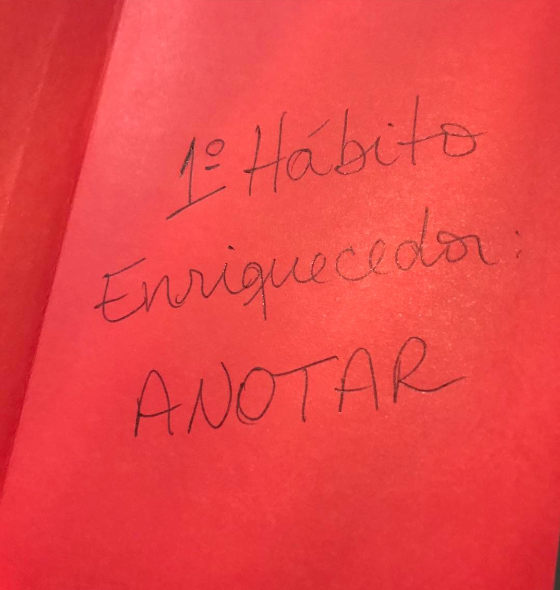 1º Hábito
Enriquecedor:
ANOTAR